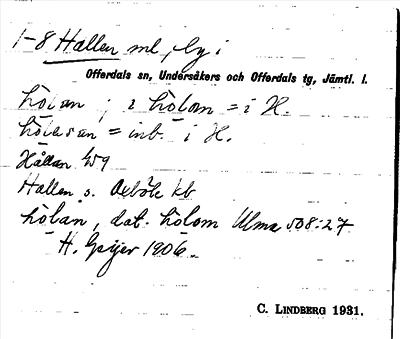 1-8 Hallen ml, by i
Offerdals sn, Undersåkers och Offerdals tg, Jämtl. l.
hòlan ; i hòlan = i H.
hòlasan = inb. i H.
Hållan
Hallen s. kb
hòlan, dat. hòlom Ulma 508:27
H. Geijer 1906.
C. LINDBERG 1931.